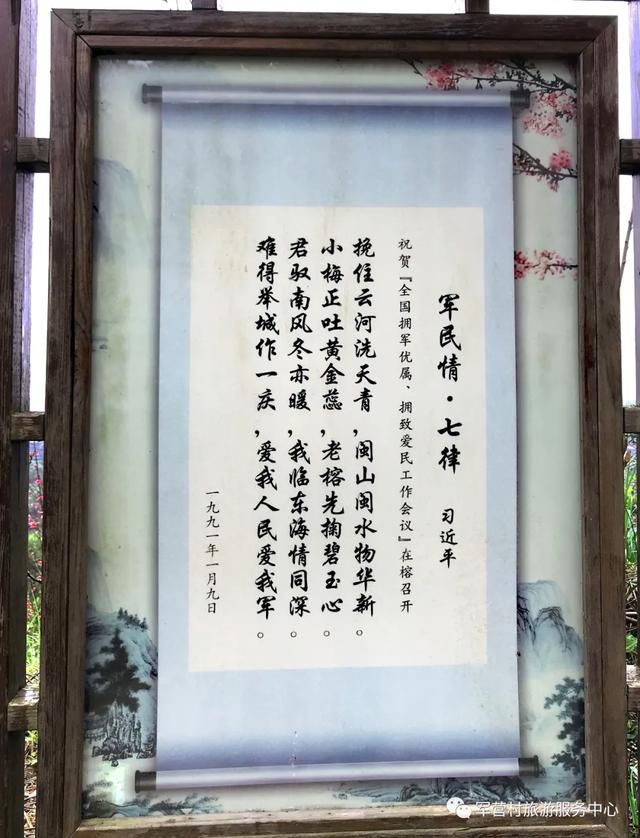 军民情·七律 习近平
祝贺『全国拥军优属、拥致爱民工作会议』在榕召开
挽住云河洗天青,闽山闽水物华新。
小梅正吐黄金蕊,老榕先掬碧玉心。
君驭南风冬亦暖,我临东海情同深。
难得举城作一庆,爱我人民爱我军。
一九九一年一月九日
军营村旅游服务中心